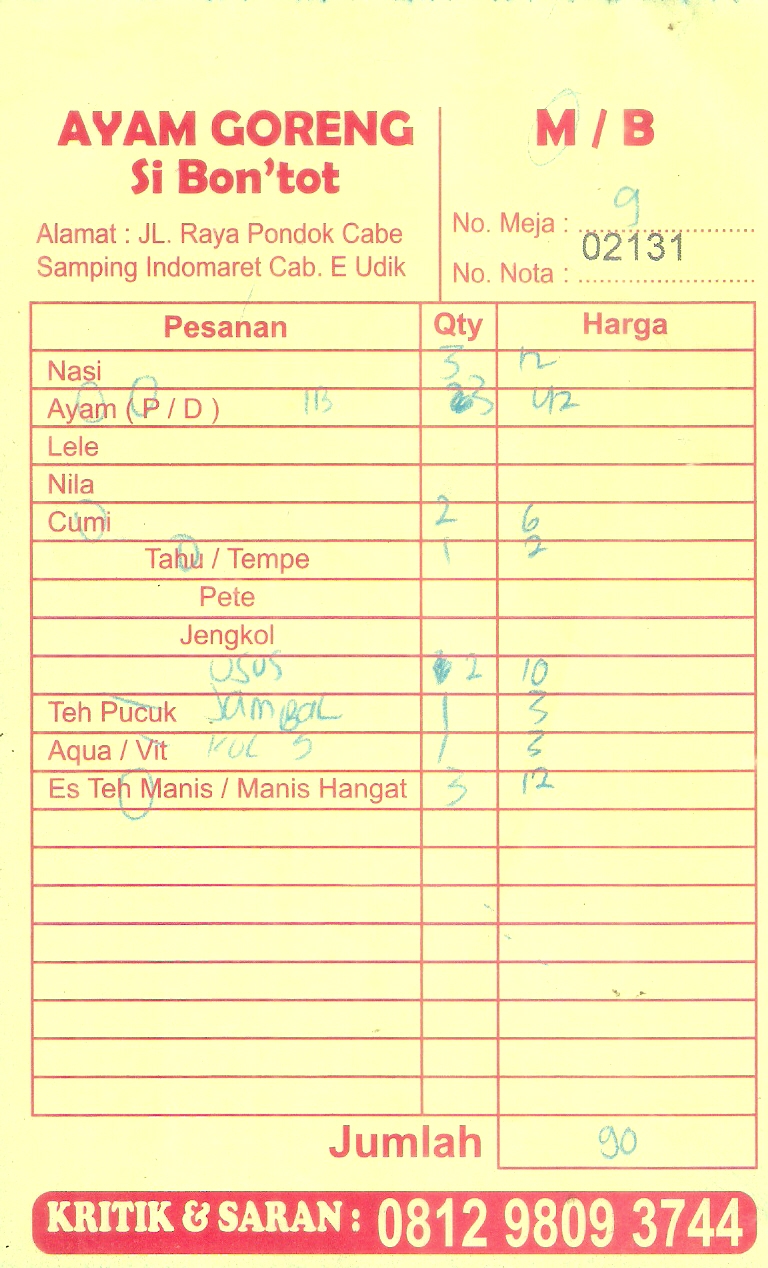 AYAM GORENG
Si Bon'tot
Alamat : JL. Raya Pondok Cabe
Samping Indomaret Cab. E Udik
M / B
No. Meja : 9
02131
No. Nota :
Pesanan Qty Harga
Nasi 3 12
Ayam ( P / D ) 3 42
Lele
Nila
Cumi 2 6
Tahu / Tempe 1 2
Pete
Jengkol
USUS 2 10
Teh Pucuk SAMBAL 1 3
Aqua / Vit KOL 1 3
Es Teh Manis / Manis Hangat 3 12
Jumlah 90
KRITIK & SARAN : 0812 9809 3744